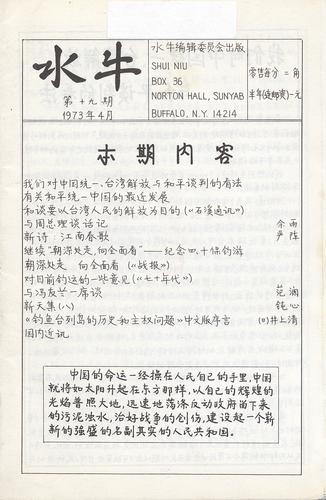 水牛
第十九期
1973年4月
水牛编辑委员会出版
SHUI NIU
BOX 36
NORTON HALL, SUNYAB
BUFFALO, N.Y. 14214
零售每分 = 二角
半年(连邮费)一元
本期内容
我们对中国统一、台湾解放与和平谈判的看法
有关和平统一中国的最近发展
和谈要以台湾人民的解放为目的(《石溪通讯》)
与周总理谈话记 余雨
新诗:江南春歌 严阵
继续"朝深处走,向全面看"——纪念四、十保钓游
朝深处走 向全面看(《战报》)
对目前钓运的一些意见(《七十年代》)
与冯友兰一席谈 范澜
新天集(八) 钝心
《钓鱼台列岛的历史和主权问题》中文版序言 (日)井上清
国内近讯
中国的命运一经操在人民自己的手里,中国
就将如太阳升起在东方那样,以自己的辉煌的
光焰普照大地,迅速地荡涤反动政府留下来
的污泥浊水,治好战争的创伤,建设起一个崭
新的强盛的名副其实的人民共和国。